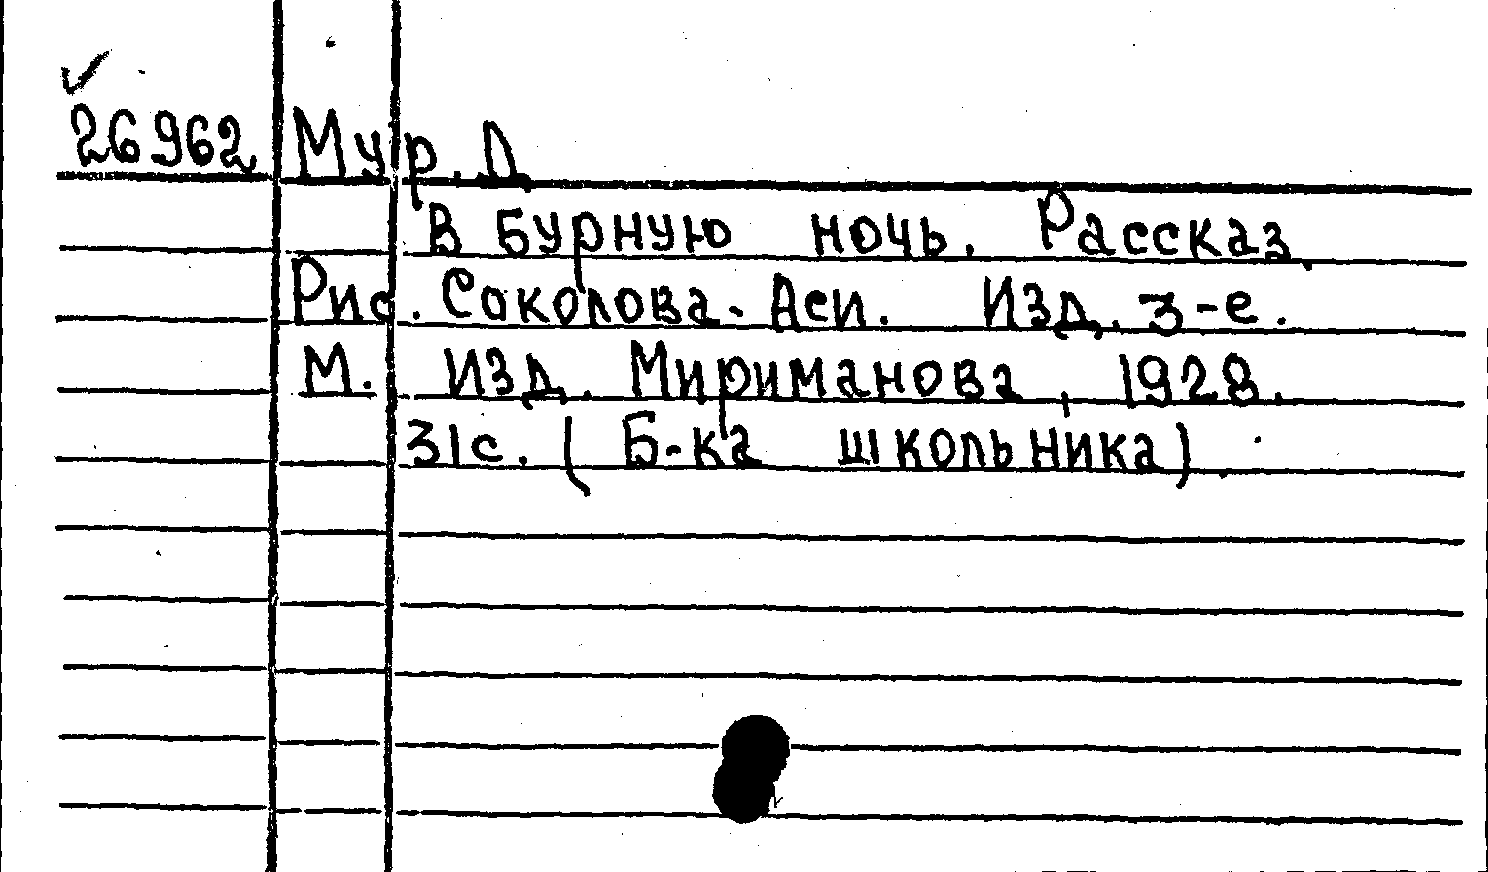 26962 Мур. Д
В бурную ночь. Рассказ.
Рис. Соколова-Аси. Изд. 3-е.
М. Изд. Мириманова, 1928.
31с. (Б-ка школьника).